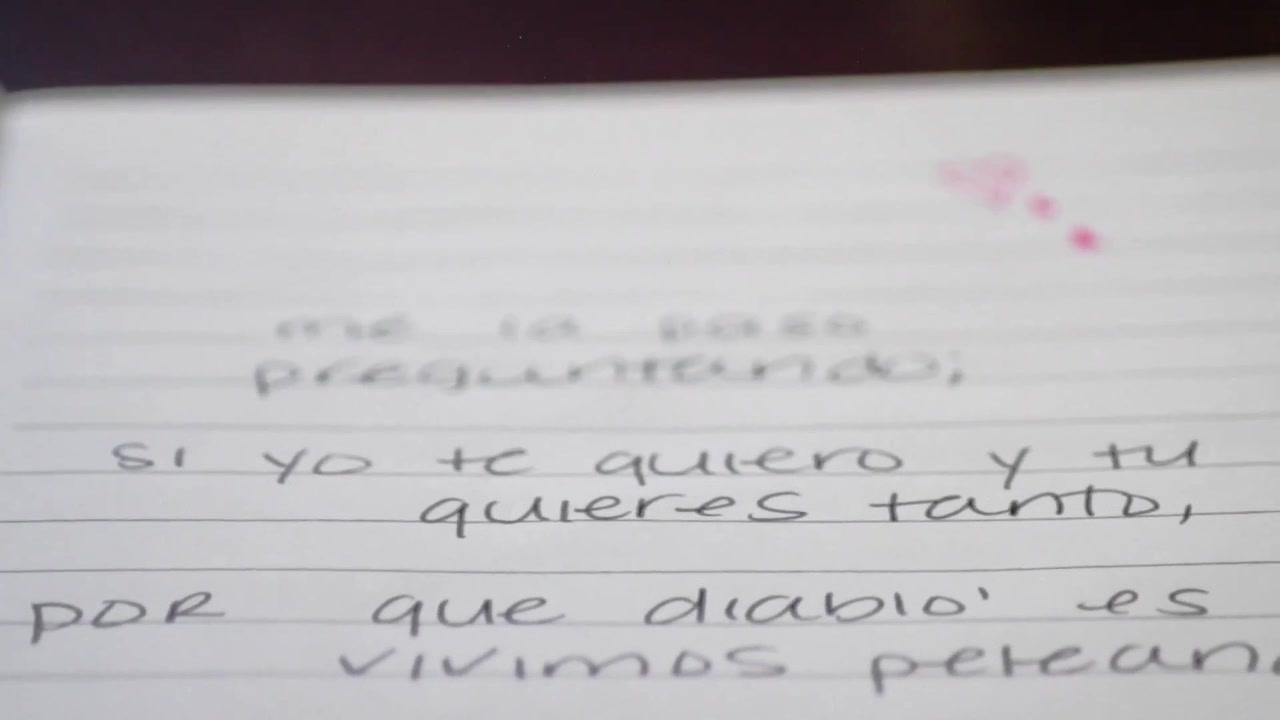 me la paso
preguntando;
si yo te quiero y tu
quieres tanto,
POR que diablo' es
vivimos